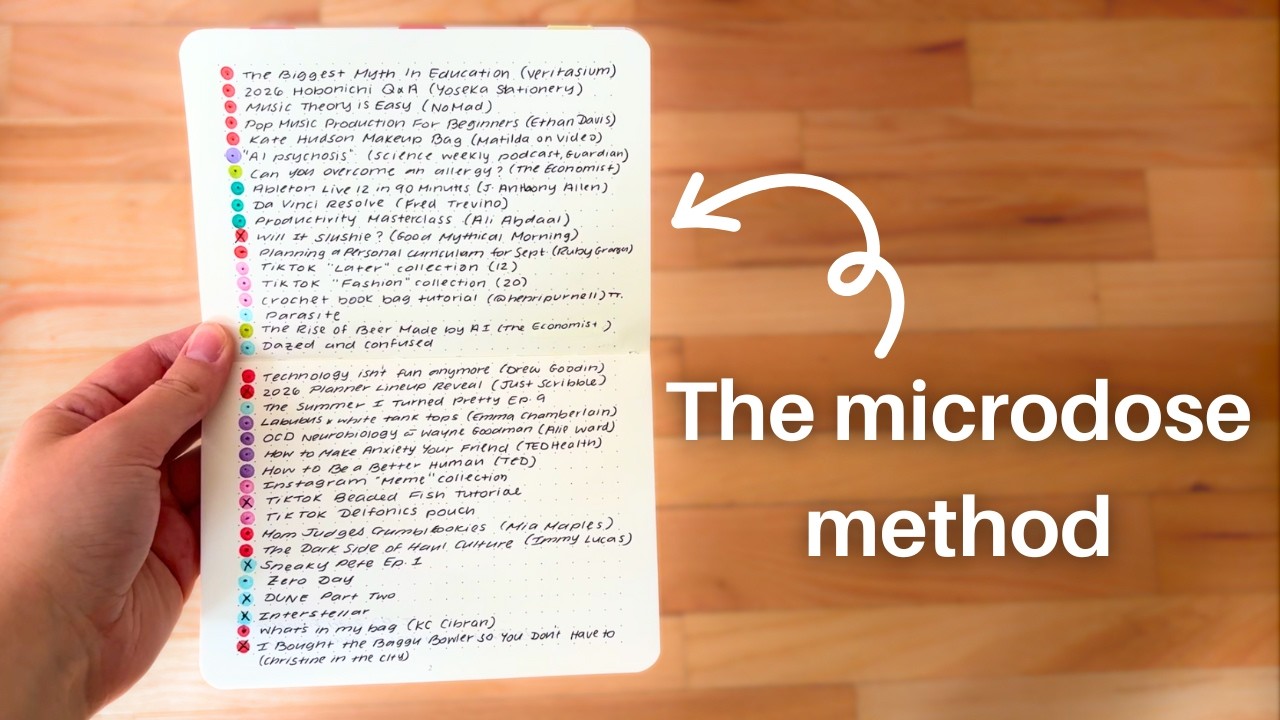 The Biggest Myth In Education (Veritasium)
2026 Hobonichi Q&A (Yoseka Stationery)
Music Theory is Easy (NoMad)
Pop Music Production For Beginners (Ethan Davis)
Kate Hudson Makeup Bag (Matilda on Video)
"AI psychosis" (Science weekly podcast, Guardian)
Can you overcome an allergy? (The Economist)
Ableton Live 12 in 90 Minutes (J. Anthony Allen)
Da Vinci Resolve (Fred Trevino)
Productivity Masterclass (Ali Abdaal)
Will It Slushie? (Good Mythical Morning)
Planning a Personal Curriculum for Sept (Ruby Granger)
TikTok "Later" collection (12)
TikTok "Fashion" collection (20)
Crochet book bag tutorial (@henripurnell) TT.
Parasite
The Rise of Beer Made by AI (The Economist)
Dazed and confused
Technology isn't fun anymore (Drew Goodin)
2026 Planner Lineup Reveal (Just Scribble)
The Summer I Turned Pretty Ep. 9
Labubus & white tank tops (Emma Chamberlain)
OCD Neurobiology c̄ Wayne Goodman (Alie Ward)
How to Make Anxiety Your Friend (TED Health)
How to Be a Better Human (TED)
Instagram "Meme" collection
TikTok Beaded Fish Tutorial
TikTok Delfonics pouch
Mom Judges Crumbl Cookies (Mia Maples)
The Dark Side of Haul Culture (Immy Lucas)
Sneaky Pete Ep. 1
Zero Day
DUNE Part Two
Interstellar
What's in my bag (KC Cibran)
I Bought the Baggu Bowler so You Don't Have to
(Christine in the city)
The microdose
method